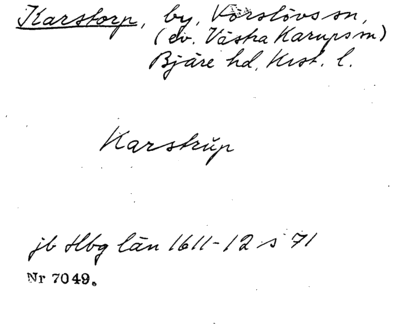 Karstorp, by, Vorslövs sn,
(ev. Västra Karups sn)
Bjäre hd, Krist. l.
Karstrŭp
jb Hbg län 1611-12 s 71
Nr 7049.